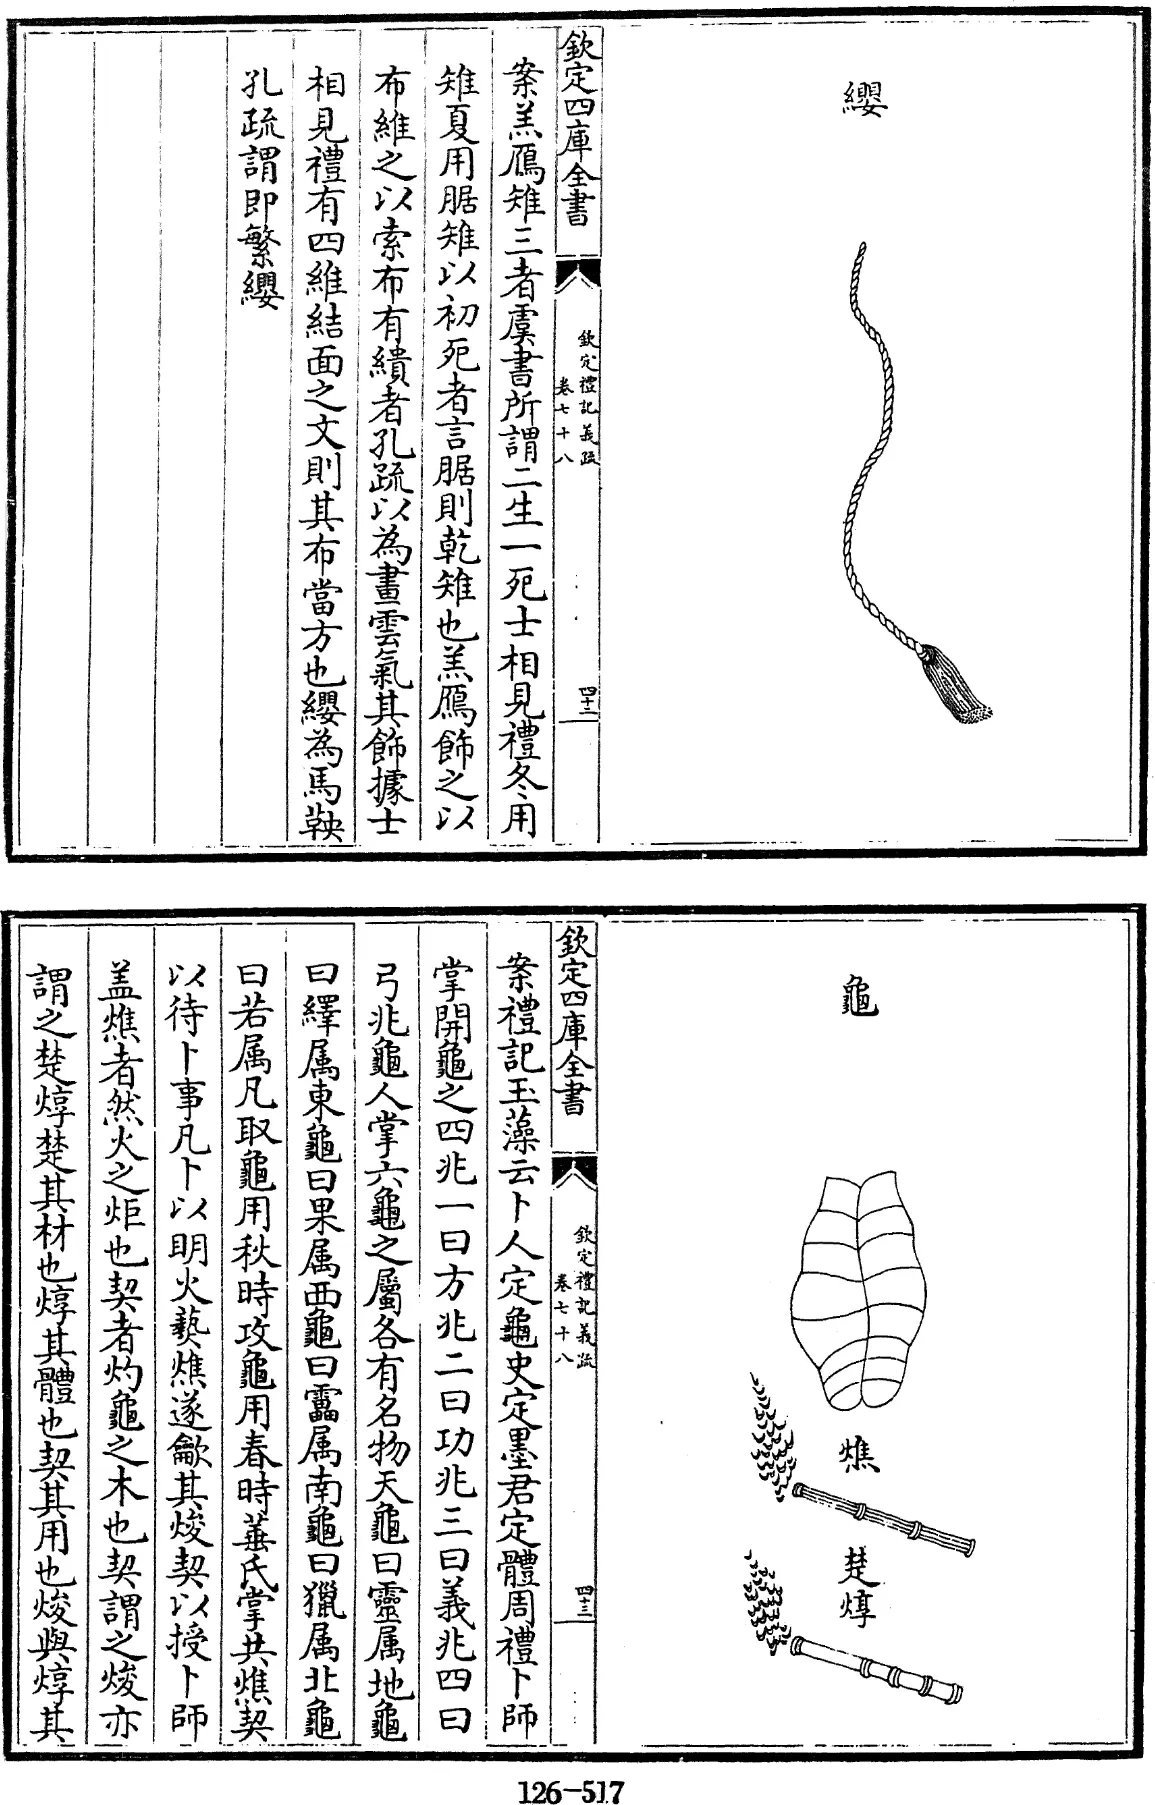 纓
欽定四庫全書
欽定禮記義疏
卷七十八
四十二
案羔鴈雉三者虞書所謂二生一死士相見禮冬用
雉夏用腒雉以初死者言腒則乾雉也羔鴈飾之以
布維之以索布有繢者孔疏以為畫雲氣其飾據士
相見禮有四維結面之文則其布當方也纓為馬鞅
孔疏謂即繁纓
龜
燋
楚焞
欽定四庫全書
欽定禮記義疏
卷七十八
四十三
案禮記玉藻云卜人定龜史定墨君定體周禮卜師
掌開龜之四兆一曰方兆二曰功兆三曰義兆四曰
弓兆龜人掌六龜之屬各有名物天龜曰靈属地龜
曰繹属東龜曰果属西龜曰靁属南龜曰獵属北龜
曰若属凡取龜用秋時攻龜用春時菙氏掌共燋契
以待卜事凡卜以明火爇燋遂龡其焌契以授卜師
盖燋者然火之炬也契者灼龜之木也契謂之焌亦
謂之楚焞楚其材也焞其體也契其用也焌與焞其
126-517